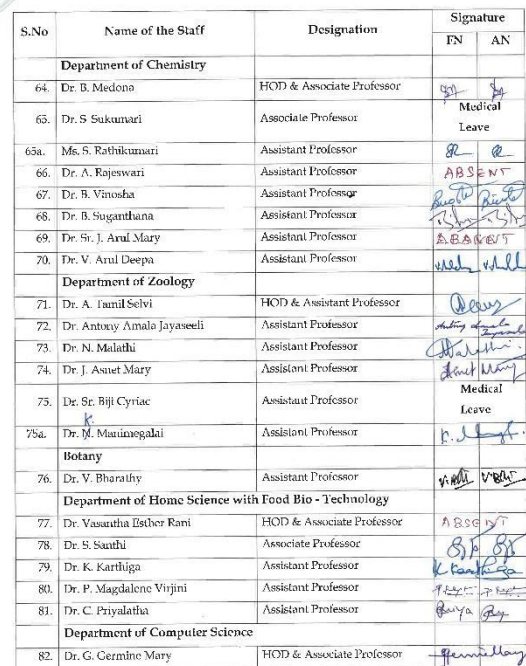 S.No Name of the Staff Designation Signature
FN AN
Department of Chemistry
64. Dr. B. Medona HOD & Associate Professor
65. Dr. S Sukumari Associate Professor Medical Leave
65a. Ms. S. Rathikumari Assistant Professor
66. Dr. A. Rajeswari Assistant Professor ABSENT
67. Dr. B. Vinosha Assistant Professor
68. Dr. B. Suganthana Assistant Professor
69. Dr. Sr. J. Arul Mary Assistant Professor
70. Dr. V. Arul Deepa Assistant Professor
Department of Zoology
71. Dr. A. Tamil Selvi HOD & Assistant Professor
72. Dr. Antony Amala Jayaseeli Assistant Professor Antony Amala
73. Dr. N. Malathi Assistant Professor Malathi
74. Dr. J. Asnet Mary Assistant Professor Asnet Mary
75. Dr. Sr. Biji Cyriac Assistant Professor Medical Leave
K.
75a. Dr. M. Manimegalai Assistant Professor
Botany
76. Dr. V. Bharathy Assistant Professor
Department of Home Science with Food Bio - Technology
77. Dr. Vasantha Esther Rani HOD & Associate Professor ABSENT
78. Dr. S. Santhi Associate Professor
79. Dr. K. Karthiga Assistant Professor K Karthiga
80. Dr. P. Magdalene Virjini Assistant Professor
81. Dr. C. Priyalatha Assistant Professor Priya
Department of Computer Science
82. Dr. G. Germine Mary HOD & Associate Professor